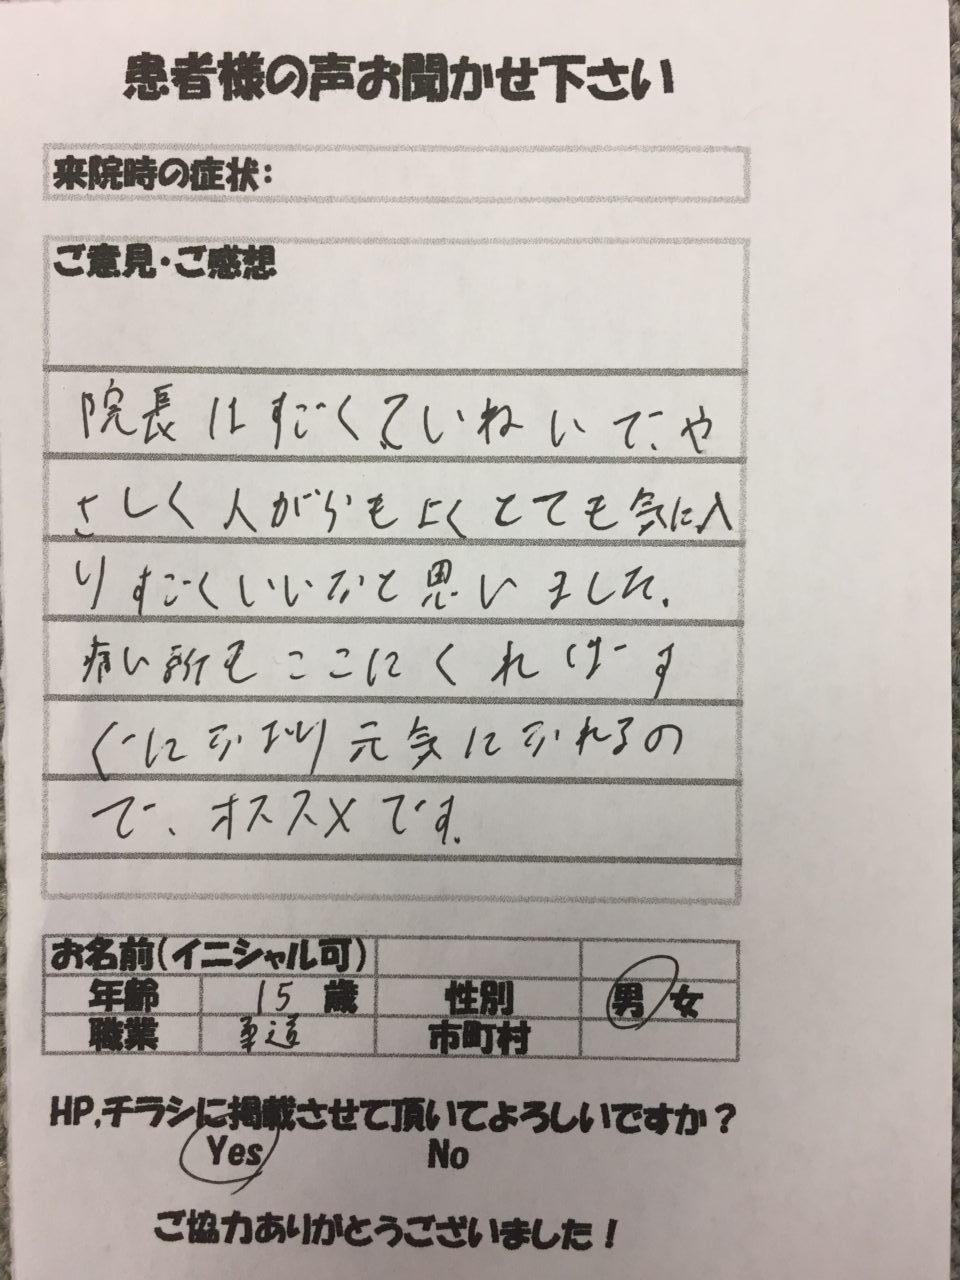 患者様の声お聞かせ下さい
来院時の症状:
ご意見・ご感想
院長はすごくていねいで、や
さしく人がらも良くとても気に入
りすごくいいなと思いました。
痛い所もここにくればす
ぐになおり元気になれるの
で、オススメです。
お名前(イニシャル可)
年齢 15 歳 性別 男 女
職業 柔道 市町村
HP,チラシに掲載させて頂いてよろしいですか?
Yes No
ご協力ありがとうございました!